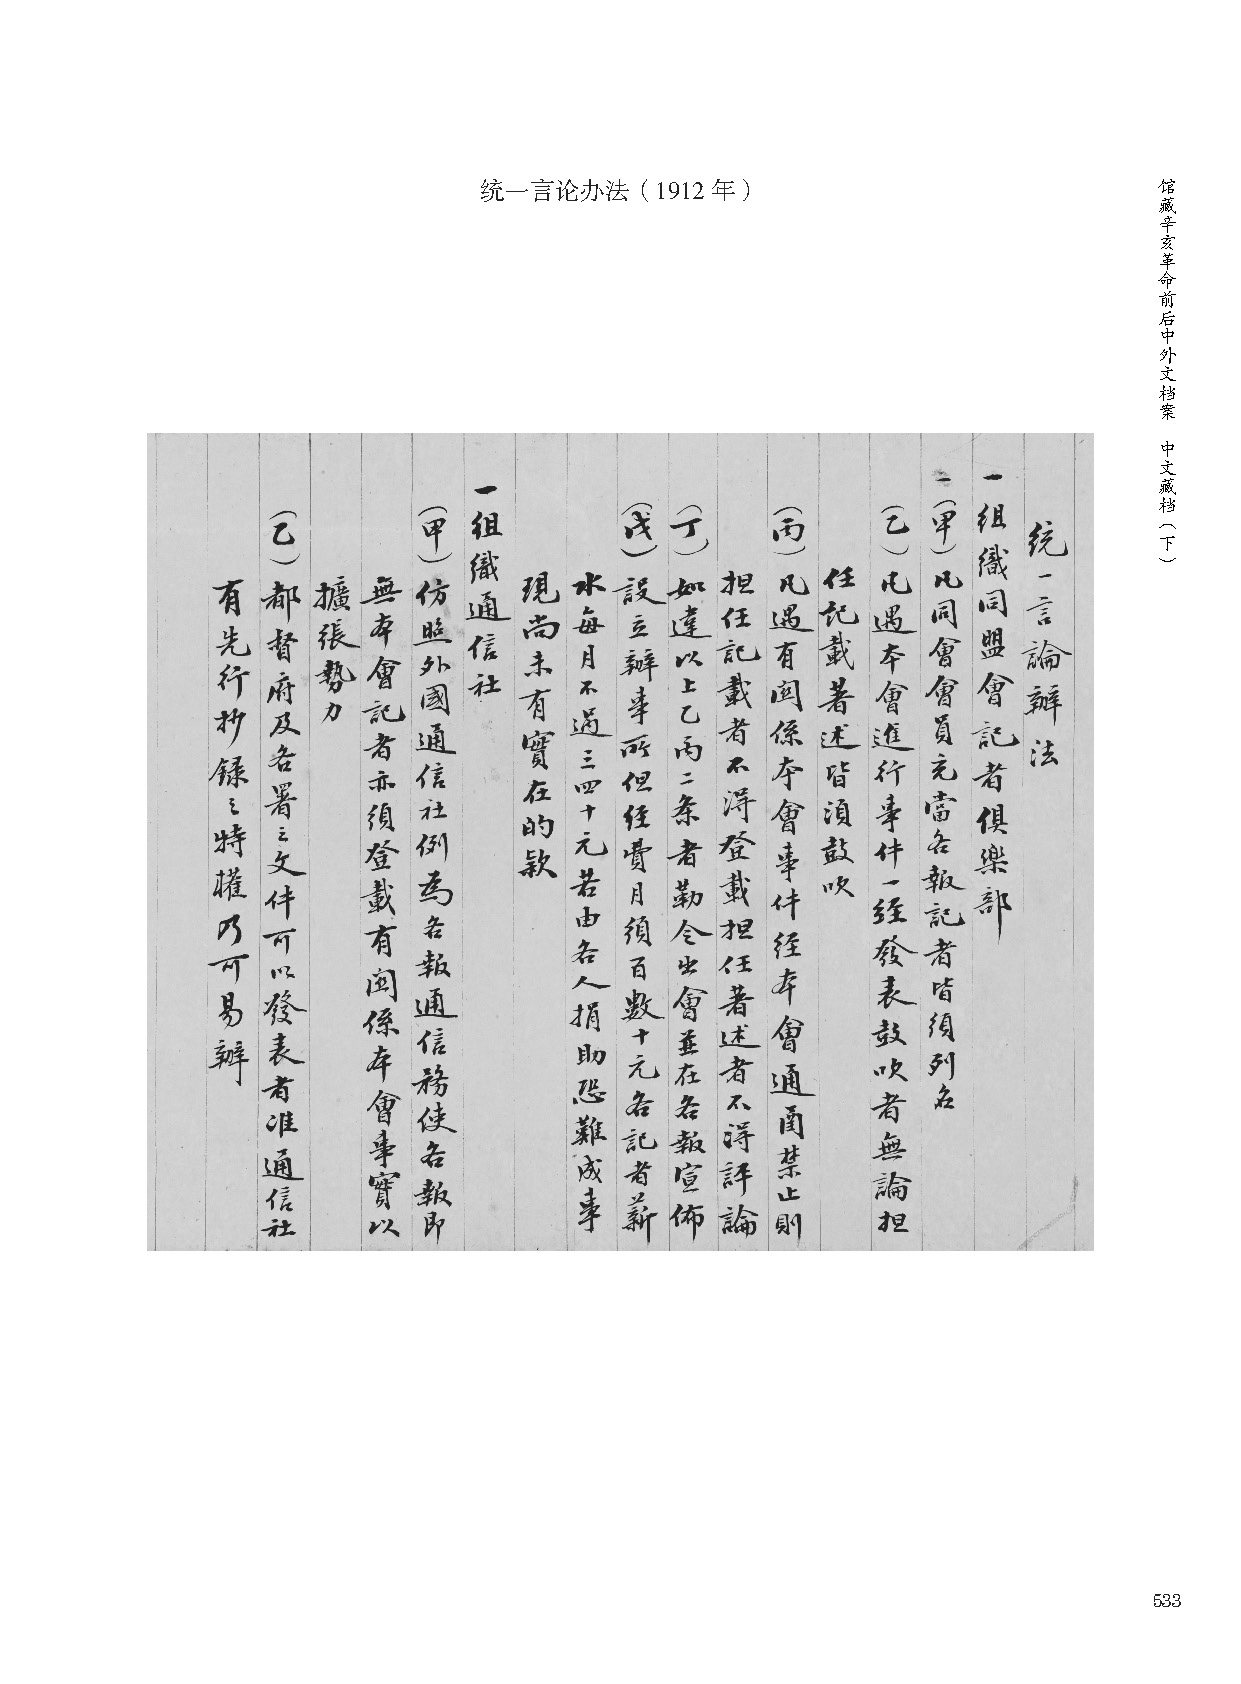 统一言论办法（1912 年）
馆藏辛亥革命前后中外文档案　中文藏档（下）
統一言論辦法
一組織同盟會記者俱樂部
一（甲）凡同會會員充當各報記者皆須列名
（乙）凡遇本會進行事件一經發表鼓吹者無論担
任記載著述皆須鼓吹
（丙）凡遇有関係本會事件經本會通函禁止則
担任記載者不得登載担任著述者不得評論
（丁）如違以上乙丙二条者勒令出會並在各報宣佈
（戊）設立辦事所但經費月須百數十元各記者薪
水每月不過三四十元若由各人捐助恐難成事
現尚未有實在的款
一組織通信社
（甲）仿照外國通信社例為各報通信務使各報即
無本會記者亦須登載有関係本會事實以
擴張勢力
（乙）都督府及各署之文件可以發表者准通信社
有先行抄録之特權乃可易辦
533